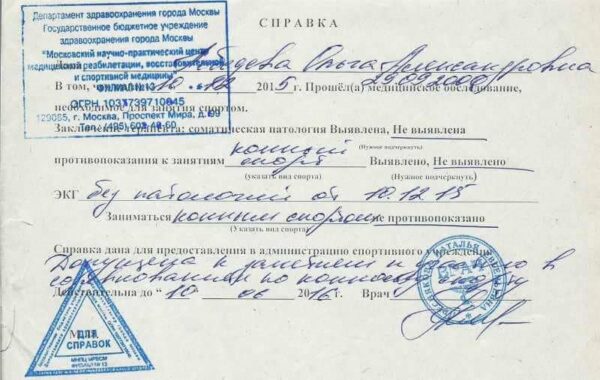 Департамент здравоохранения города Москвы
Государственное бюджетное учреждение
здравоохранения города Москвы
"Московский научно-практический центр
медицинской реабилитации, восстановительной
и спортивной медицины"
ФИЛИАЛ N 13
ОГРН 1037739710845
129085, г. Москва, Проспект Мира, д.
Тел. (495)
СПРАВКА
Дана Ольга Александровна
В том, что 10 12 2015г. Прошёл(а) медицинское обследование,
необходимое для занятия спортом.
Заключение терапевта: соматическая патология Выявлена, Не выявлена
(Нужное подчеркнуть)
противопоказания к занятиям конный спорт Выявлено, Не выявлено
(указать вид спорта) (Нужное подчеркнуть)
ЭКГ без патологий от 10.12.15
Заниматься конным спортом не противопоказано
(Указать вид спорта)
Справка дана для предоставления в администрацию спортивного учреждения
Допущена к занятиям и участию в
соревнованиях по конному спорту
Действительна до "10 06 2016г. Врач
М.П.
ДЛЯ
СПРАВОК
МНПЦ МРВСМ
ФИЛИАЛ N 13
ВРАЧ
НАТАЛЬЯ